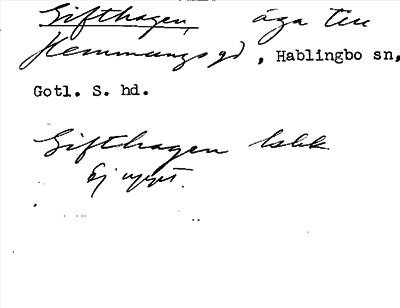 Gifthagen, äga till
Hemmungs gd, Hablingbo sn,
Gotl. S. hd.
Gifthagen
Ej uppt.